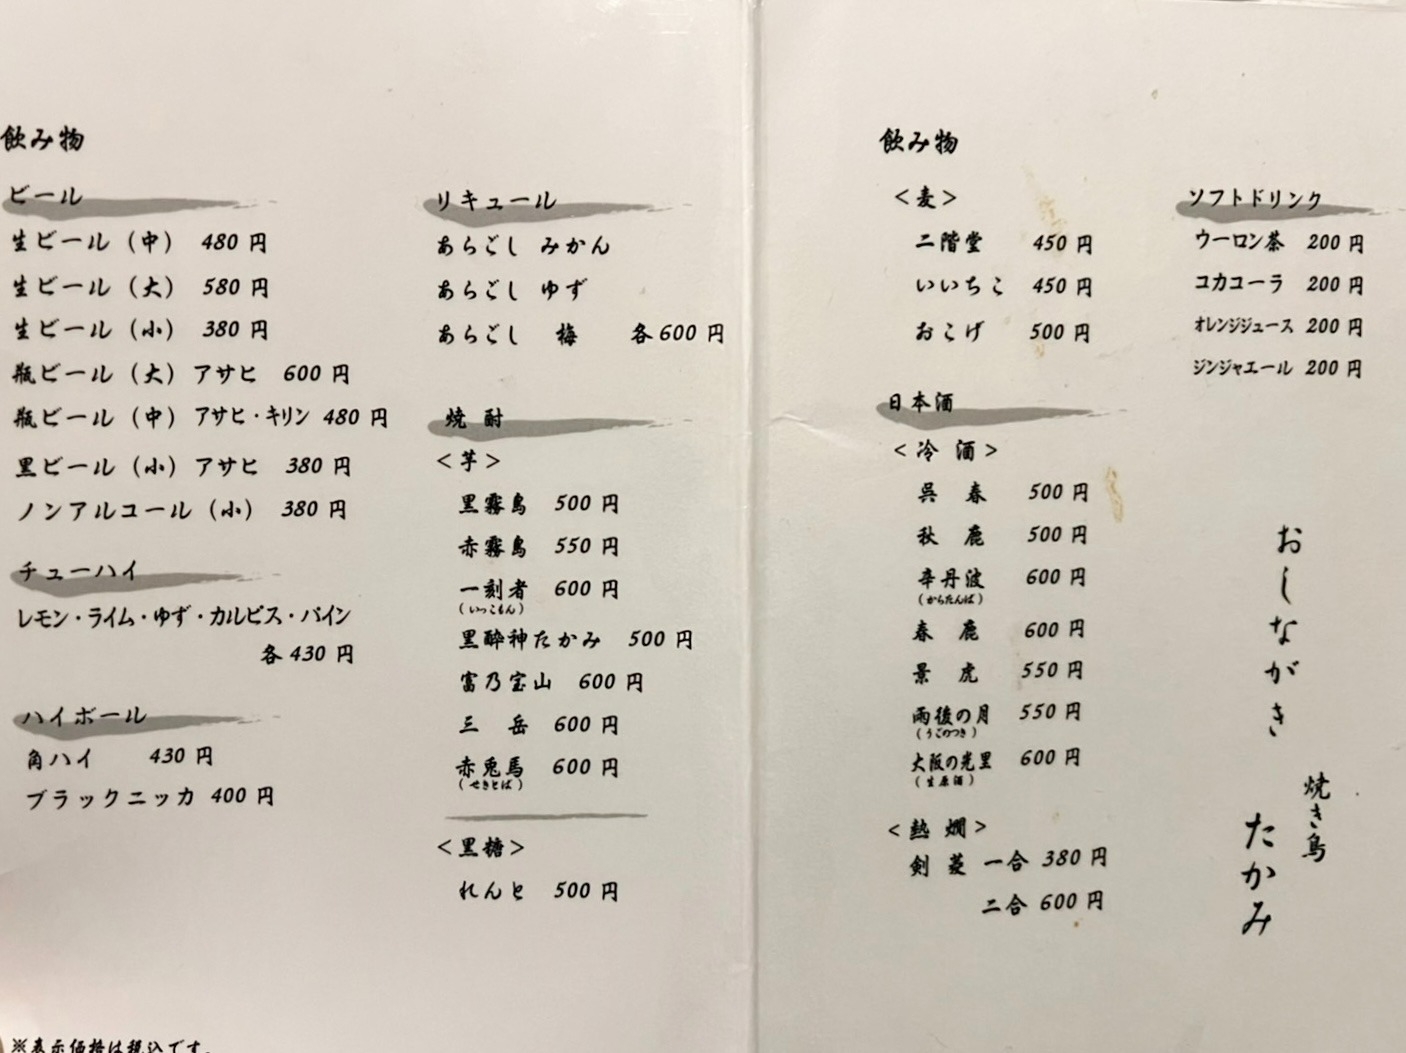 飲み物
ビール
生ビール（中） 480 円
生ビール（大） 580 円
生ビール（小） 380 円
瓶ビール（大）アサヒ 600 円
瓶ビール（中）アサヒ・キリン 480 円
黒ビール（小）アサヒ 380 円
ノンアルコール（小） 380 円
チューハイ
レモン・ライム・ゆず・カルピス・パイン
各 430 円
ハイボール
角ハイ 430 円
ブラックニッカ 400 円
リキュール
あらごし みかん
あらごし ゆず
あらごし 梅 各 600 円
焼 酎
＜芋＞
黒霧島 500 円
赤霧島 550 円
一刻者 600 円
（いっこもん）
黒酔神たかみ 500 円
富乃宝山 600 円
三 岳 600 円
赤兎馬 600 円
（せきとば）
＜黒糖＞
れんと 500 円
※表示価格は税込です。
飲み物
＜麦＞
二階堂 450 円
いいちこ 450 円
おこげ 500 円
日本酒
＜冷 酒＞
呉 春 500 円
秋 鹿 500 円
辛丹波 600 円
（からたんば）
春 鹿 600 円
景 虎 550 円
雨後の月 550 円
（うごのつき）
大阪の光里 600 円
（生原酒）
＜熱 燗＞
剣 菱 一合 380 円
二合 600 円
ソフトドリンク
ウーロン茶 200 円
コカコーラ 200 円
オレンジジュース 200 円
ジンジャエール 200 円
おしながき
焼き鳥
たかみ